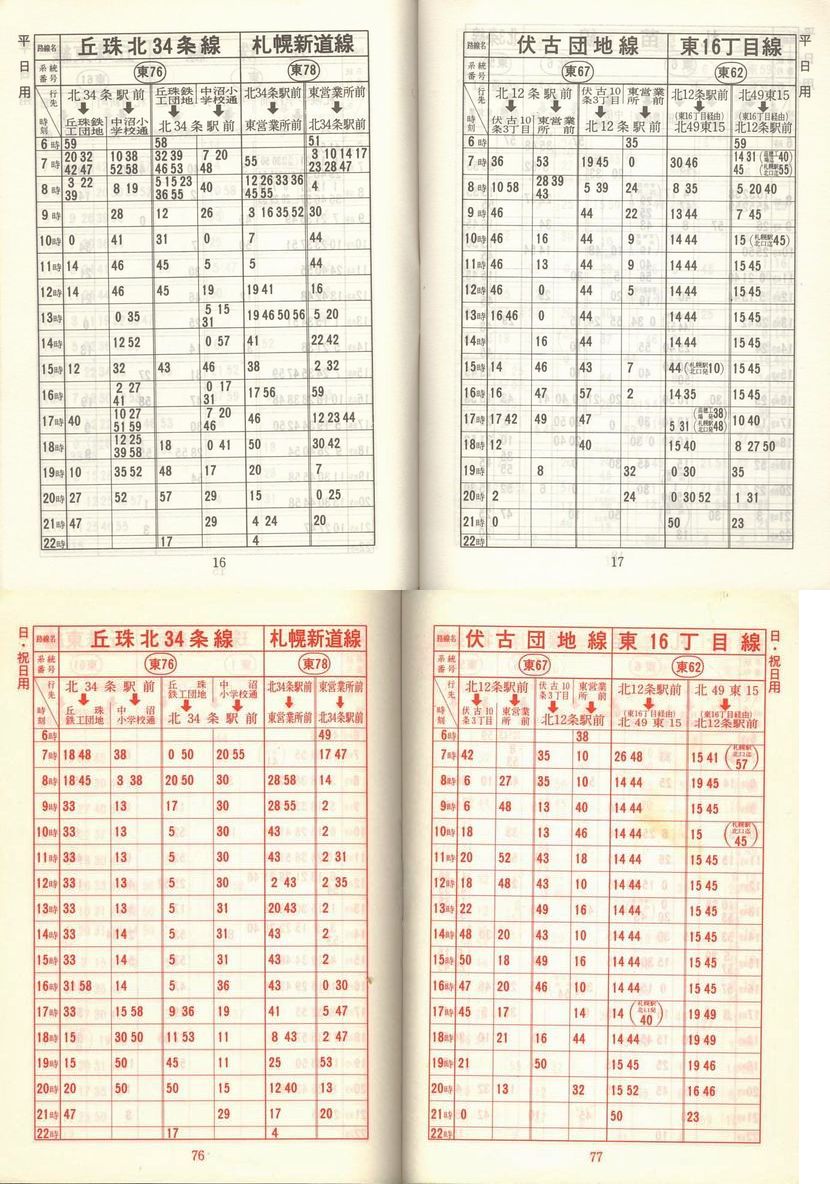 平日用
路線名 丘珠北34条線 札幌新道線
系統番号 東76 東78
行先 時刻 北34条駅前 丘珠鉄工団地 中沼小学校通 北34条駅前 東営業所前
丘珠鉄工団地 中沼小学校通 北34条駅前 東営業所前 北34条駅前
6時 59 58 51
7時 20 32 42 47 10 38 52 58 32 39 46 53 7 20 48 55 3 10 14 17 23 28 47
8時 3 22 39 8 19 5 15 23 36 55 40 12 26 33 36 45 55 4
9時 28 12 26 3 16 35 52 30
10時 0 41 31 0 7 44
11時 14 46 45 5 5 44
12時 14 46 45 19 19 41 16
13時 0 35 5 15 31 19 46 50 56 5 20
14時 12 52 0 57 41 22 42
15時 12 32 43 46 38 2 32
16時 2 27 41 0 17 31 17 56 59
17時 40 10 27 51 59 7 20 46 46 12 23 44
18時 12 25 39 58 18 0 41 50 30 42
19時 10 35 52 48 17 20 7
20時 27 52 57 29 15 0 25
21時 47 29 4 24 20
22時 17 4
16
平日用
路線名 伏古団地線 東16丁目線
系統番号 東67 東62
行先 時刻 北12条駅前 伏古10条3丁目 東営業所前 北12条駅前 北49東15
伏古10条3丁目 東営業所前 北12条駅前 (東16丁目経由) 北49東15 (東16丁目経由) 北12条駅前
6時 35 59
7時 36 53 19 45 0 30 46 14 31 40 45 (札幌駅北口迄55)
8時 10 58 28 39 43 5 39 24 8 35 5 20 40
9時 46 44 22 13 44 7 45
10時 46 16 44 9 14 44 15 (札幌駅北口迄45)
11時 46 13 44 9 14 44 15 45
12時 46 0 44 5 14 44 15 45
13時 16 46 0 44 14 44 15 45
14時 16 44 14 44 15 45
15時 14 46 43 7 44 (札幌駅北口発10) 15 45
16時 16 47 57 2 14 35 15 45
17時 17 42 49 47 5 31 38 (札幌駅北口発48) 10 40
18時 12 40 15 40 8 27 50
19時 8 32 0 30 35
20時 2 24 0 30 52 1 31
21時 0 50 23
22時
17
日・祝日用
路線名 丘珠北34条線 札幌新道線
系統番号 東76 東78
行先 時刻 北34条駅前 丘珠鉄工団地 中沼小学校通 北34条駅前 東営業所前
丘珠鉄工団地 中沼小学校通 北34条駅前 東営業所前 北34条駅前
6時 49
7時 18 48 38 0 50 20 55 17 47
8時 18 45 3 38 20 50 30 28 58 14
9時 33 13 17 30 28 55 2
10時 33 13 5 30 43 2
11時 33 13 5 30 43 2 31
12時 33 13 5 30 2 43 2 35
13時 33 13 5 31 20 43 2
14時 33 14 5 31 43 2
15時 33 14 5 31 43 2
16時 31 58 14 5 36 43 0 30
17時 33 15 58 9 36 19 41 5 47
18時 15 30 50 11 53 11 8 43 2 47
19時 15 50 45 11 25 53
20時 20 50 50 15 12 40 13
21時 47 29 17 20
22時 17 4
76
日・祝日用
路線名 伏古団地線 東16丁目線
系統番号 東67 東62
行先 時刻 北12条駅前 伏古10条3丁目 東営業所前 北12条駅前 北49東15
伏古10条3丁目 東営業所前 北12条駅前 (東16丁目経由) 北49東15 (東16丁目経由) 北12条駅前
6時 38
7時 42 35 10 26 48 15 41 (札幌駅北口迄57)
8時 6 27 35 10 14 44 19 45
9時 6 48 13 40 14 44 15 45
10時 18 13 46 14 44 15 (札幌駅北口迄45)
11時 20 52 43 18 14 44 15 45
12時 18 48 43 10 14 44 15 45
13時 22 49 16 14 44 15 45
14時 48 20 43 10 14 44 15 45
15時 50 18 49 16 14 44 15 45
16時 47 20 46 10 14 44 15 45
17時 45 17 14 14 (札幌駅北口発40) 19 49
18時 21 16 44 14 44 19 49
19時 21 50 15 45 19 46
20時 13 32 15 52 16 46
21時 0 50 23
22時
77